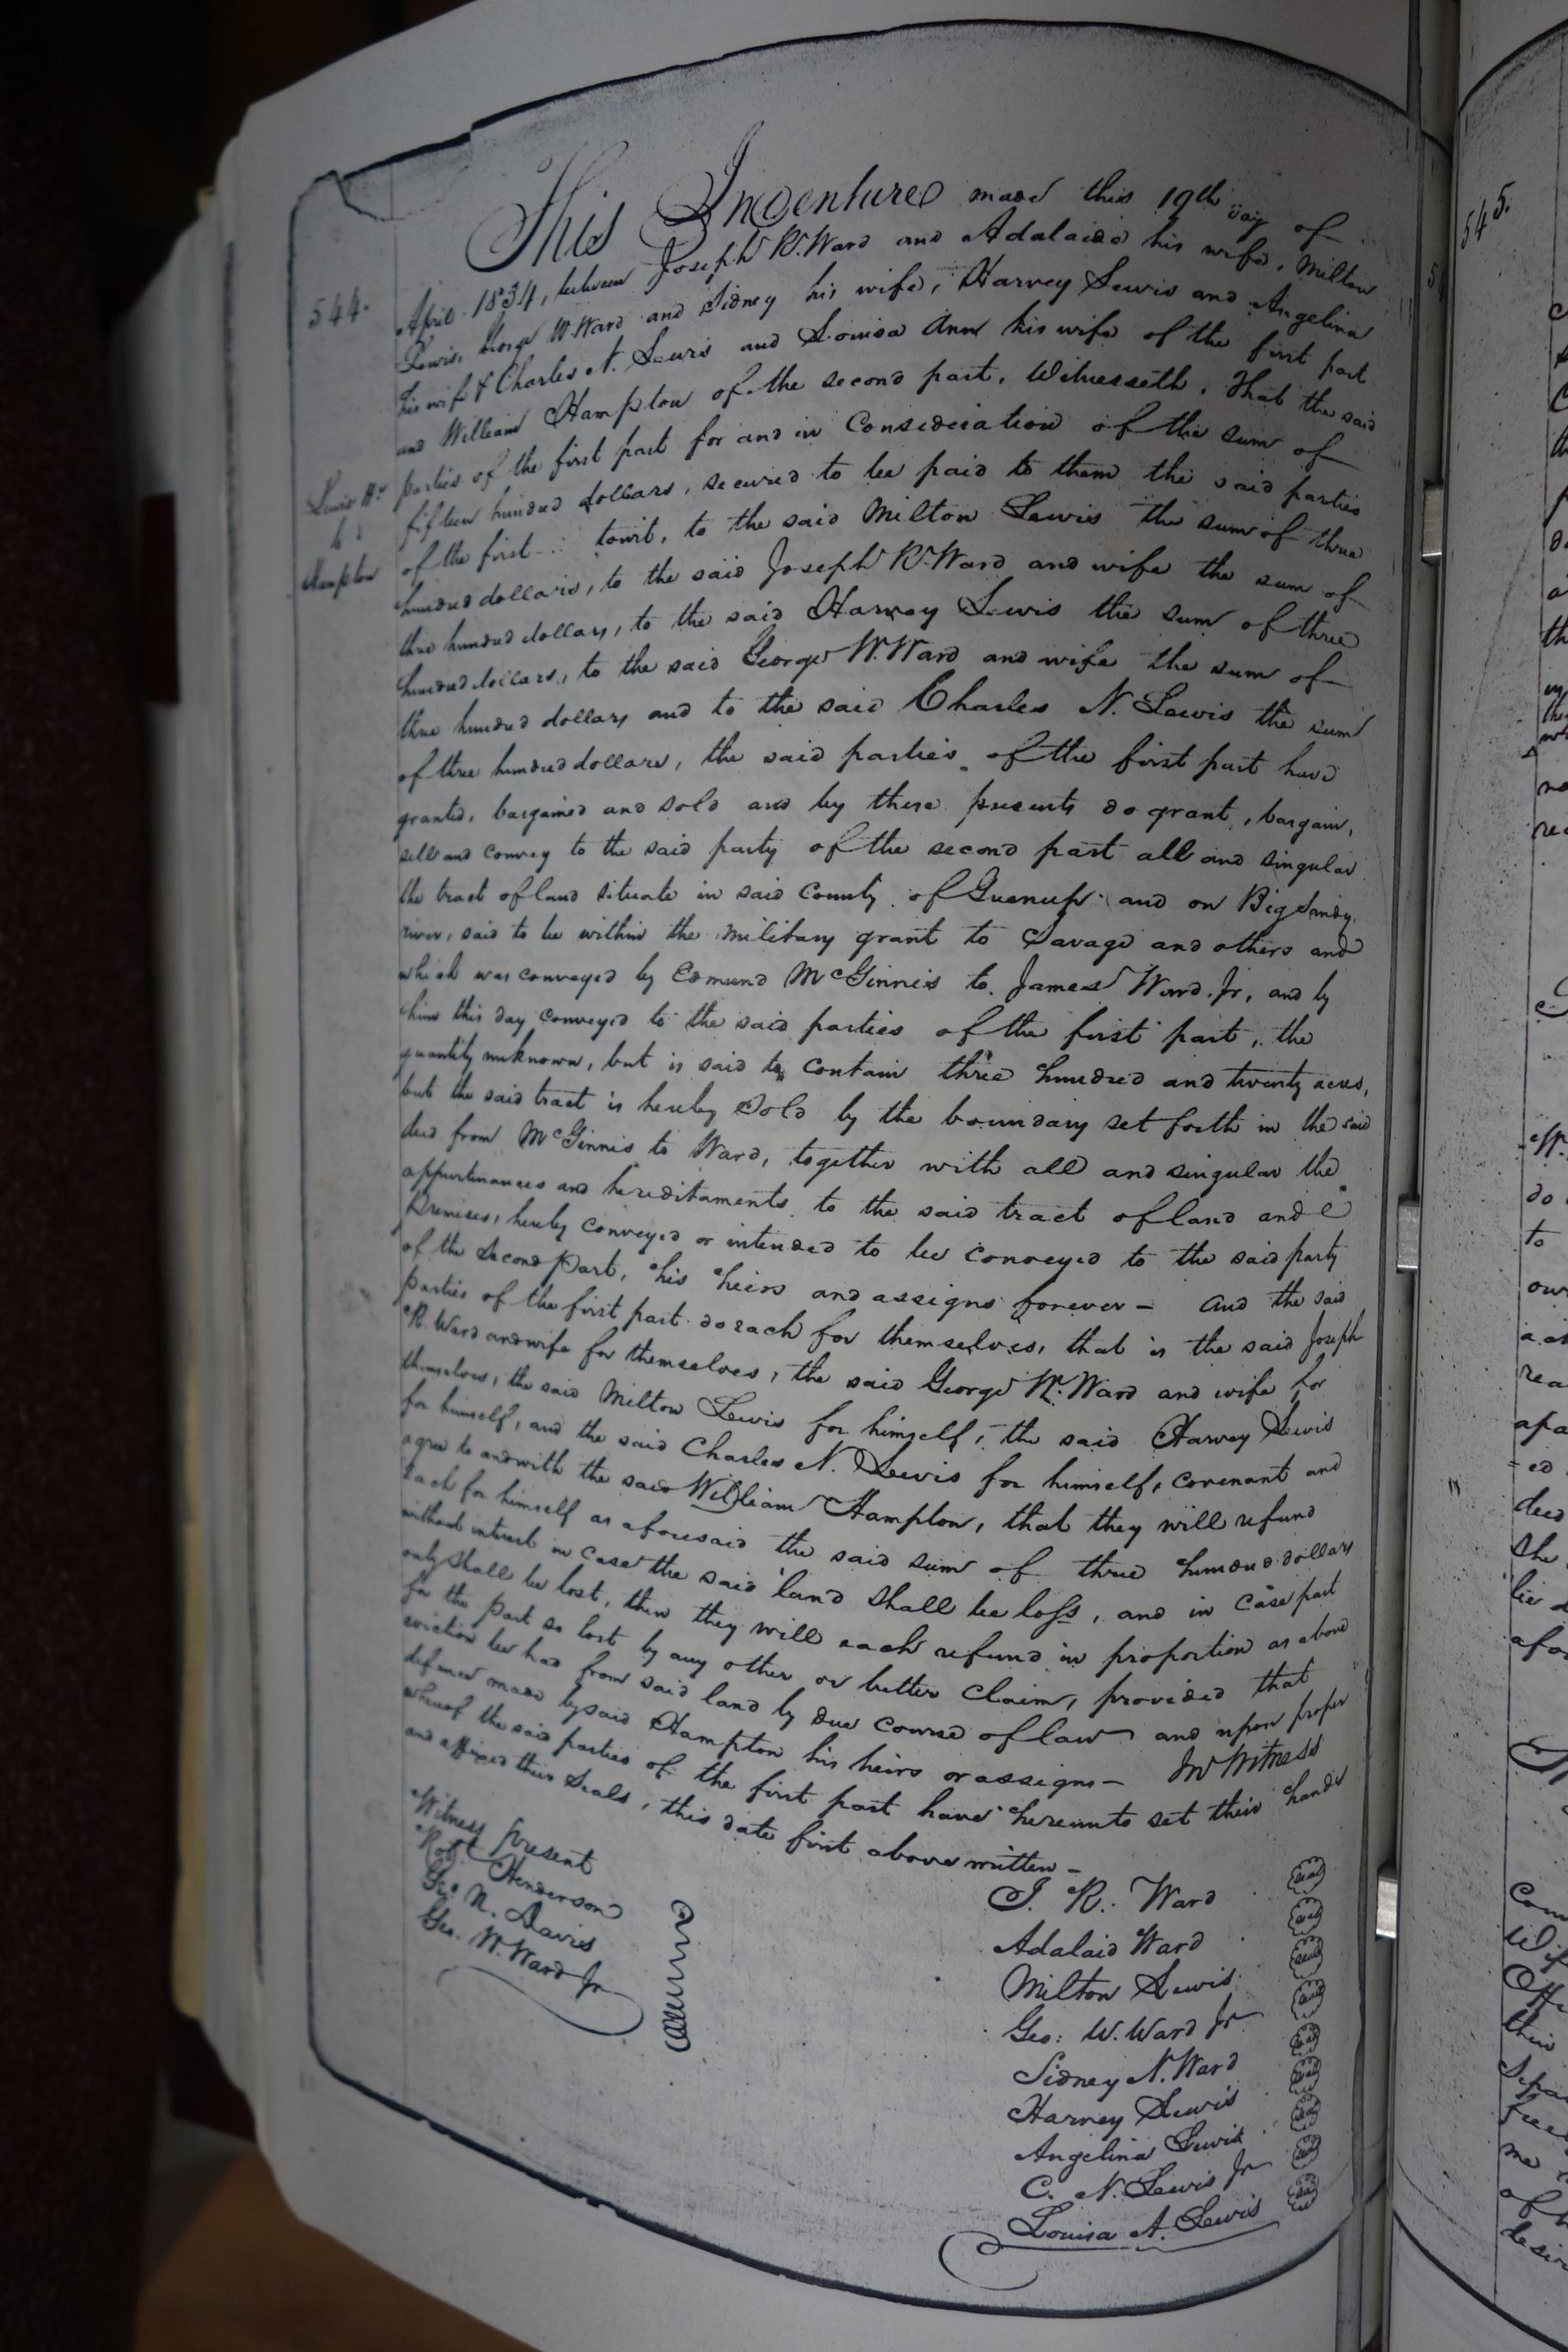 544.
This Indenture made this 19th day of
April 1834, between Joseph R. Ward and Adalaide his wife, Milton
Lewis, George W. Ward and Sidney his wife, Harvey Lewis and Angelina
his wife & Charles N. Lewis and Louisa Ann his wife of the first part
and William Hampton of the second part, Witnesseth, That the said
parties of the first part for and in Consideration of the sum of
fifteen hundred dollars, secured to be paid to them the said parties
of the first towit, to the said Milton Lewis the sum of three
hundred dollars, to the said Joseph R. Ward and wife the sum of
three hundred dollars, to the said Harvey Lewis the sum of three
hundred dollars, to the said George W. Ward and wife the sum of
three hundred dollars and to the said Charles N. Lewis the sum
of three hundred dollars, the said parties of the first part have
granted, bargained and sold and by these presents do grant, bargain,
sell and convey to the said party of the second part all and singular
the tract of land situate in said County of Greenup and on Big Sandy
river, said to be within the military grant to Savage and others and
which was conveyed by Edmund McGinnis to James Ward Jr, and by
him this day conveyed to the said parties of the first part, the
quantity unknown, but is said to contain three hundred and twenty acres,
but the said tract is hereby Sold by the boundary set forth in the said
deed from McGinnis to Ward, together with all and singular the
appurtenances and hereditaments to the said tract of land and
Premises, hereby conveyed or intended to be conveyed to the said party
of the Second Part, his heirs and assigns forever - And the said
parties of the first part do each for themselves, that is the said Joseph
R. Ward and wife for themselves, the said George W. Ward and wife for
themselves, the said Milton Lewis for himself, the said Harvey Lewis
for himself, and the said Charles N. Lewis for himself, covenant and
agree to and with the said William Hampton, that they will refund
each for himself as aforesaid the said sum of three hundred dollars
without interest in case the said land shall be loss, and in case part
only shall be lost, then they will each refund in proportion as above
for the part so lost by any other or better claim, provided that
eviction be had from said land by due course of law and upon proper
defence made by said Hampton his heirs or assigns - In Witness
whereof the said parties of the first part have hereunto set their hands
and affixed their Seals, this date first above written -
Lewis &c
to
Hampton
Witness present
Robt Henderson
Geo N. Davis
Geo. W. Ward Jr
J. R. Ward seal
Adalaid Ward seal
Milton Lewis seal
Geo: W. Ward Jr seal
Sidney N. Ward seal
Harvey Lewis seal
Angelina Lewis seal
C. N. Lewis Jr seal
Louisa A. Lewis seal
545.